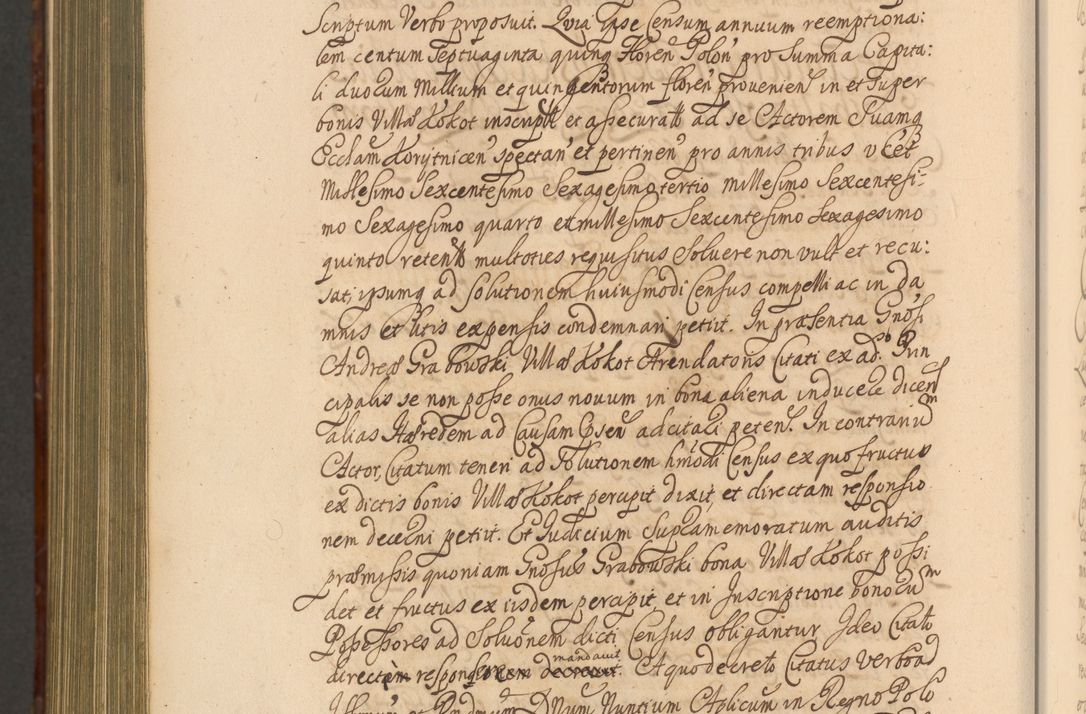 Scriptum Verbo proposuit. Quia Ipse Censum annuum reemptiona:
lem centum septuaginta quinq Floren Polon pro summa Capita:
li duorum Millium et quingentorum floren provenien in et super
bonis Villæ Kokot inscript et assecuratt ad se Actorem suamq
Ecclam Korytnicen spectan et pertinen pro annis tribus vcet
Millesimo Sexcentesimo Sexagesimo tertio millesimo Sexcentesi-
mo Sexagesimo quarto et millesimo Sexcentesimo Sexagesimo
quinto retent multoties requisitus Soluere non vult et recu:
sat, ipsumq ad solutionem huiusmodi Census compelli ac in da
mnis et litis expensis condemnari petiit. In præsentia Gnosi
Andreæ Grabowski Villæ Kokot Arendatoris Citati ex ado. Prin
cipalis se non posse onus nouum in bona aliena inducere dicen
alias Hæredem ad Causam adcitari peten. In contrariu
Actor, Citatum teneri ad Solutionem hmodi Census ex quo fructus
ex dictis bonis Villæ Kokot percipit dixit, et directam responsio
nem decerni petiit. Et Judicium Supramemoratum auditis
præmissis quoniam Gnosus Grabowski bona Villæ Kokot possi
det et fructus ex iisdem percipit, et in Inscriptione bonorum
Possessores ad Soluonem dicti Census obligantur Ideo Citato
directam responsionem decreuit. mandauit A quo decreto Citatus verbo ad
Illmum et Rndmum Dnum Nuntium Aplicum in Regno Polo